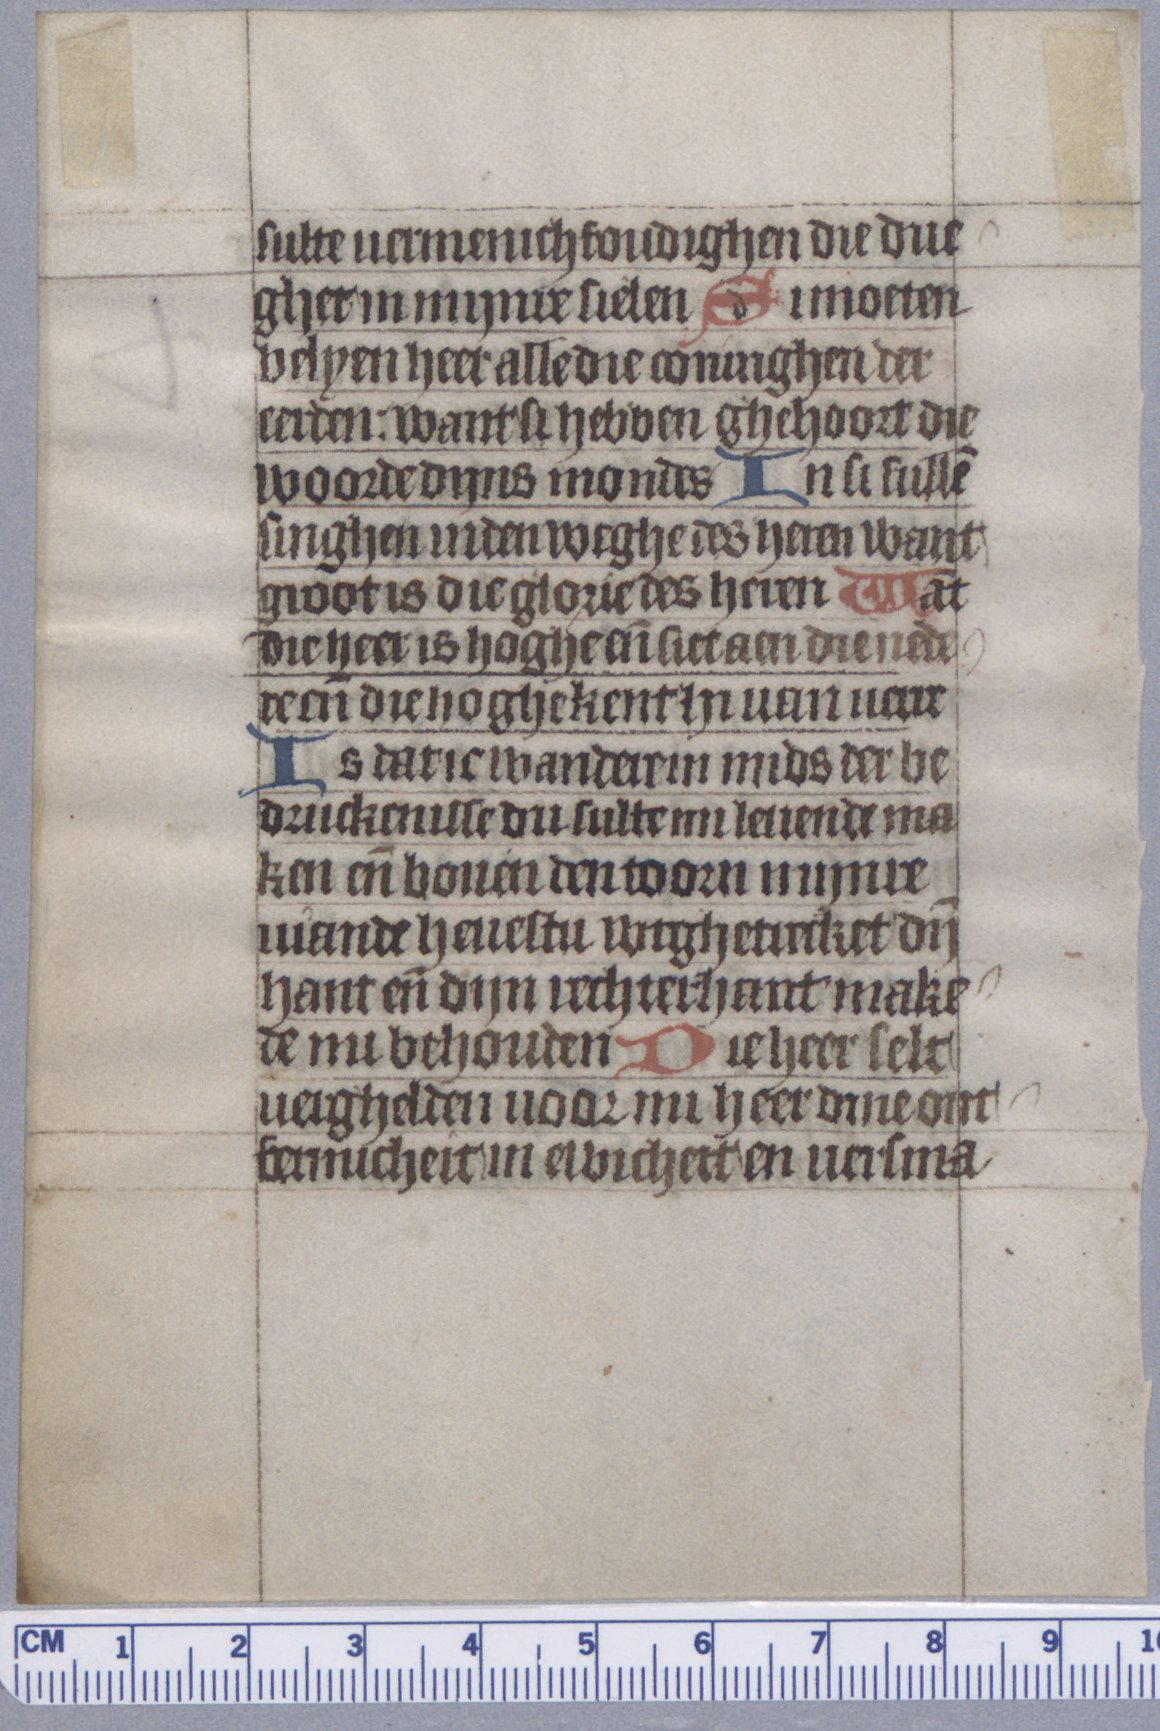 sulte uermenichfoudighen die due
ghet in mijnre sielen Si moeten
belyen heer alle die coninghen der
eerden: want si hebben ghehoort die
woorde dijns mondes In si sullē
singhen in den weghe des heren want
groot is die glorie des heren Wāt
die heer is hoghe eñ siet aen die nede
re eñ die hoghe kent hi uan uerre
Is dat ic wandere in mids der be
druckenisse du sulte mi leuende ma
ken eñ bouen den toorn mijnre
uiande heuestu wtghetrecket dijn̄
hant eñ dijn rechterhant make
de mi behouden Die heer selt
uerghelden uoor mi heer dine ont
fermicheit in ewicheit en uersma
CM 1 2 3 4 5 6 7 8 9 10